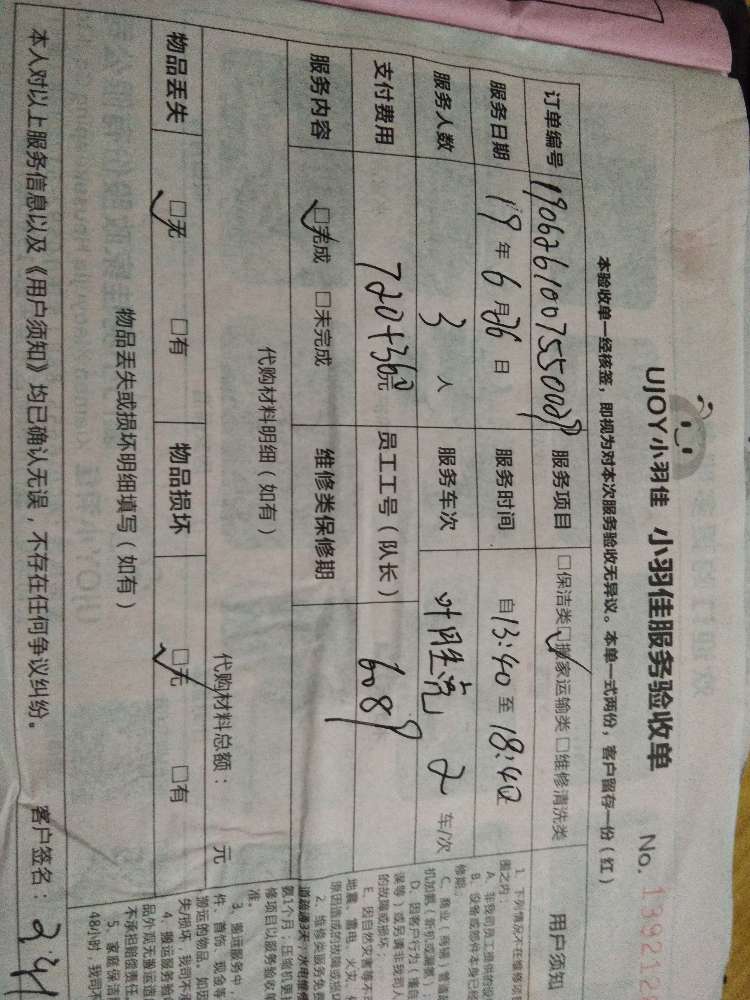 UJOY小羽佳 小羽佳服务验收单 No. 139212
本验收单一经核签，即视为对本次服务验收无异议。本单一式两份，客户留存一份（红）
订单编号 19062610075500 服务项目 □保洁类 □搬家运输类 □维修清洗类
服务日期 19年6月26日 服务时间 自13:40至18:40
服务人数 3人 服务车次 2 车/次
支付费用 720+36元 员工工号（队长） 6089
服务内容 □完成 □未完成 维修类保修期
代购材料明细（如有） 代购材料总额： 元
物品丢失 □无 □有 物品损坏 □无 □有
物品丢失或损坏明细填写（如有）
本人对以上服务信息以及《用户须知》均已确认无误，不存在任何争议纠纷。 客户签名：
用户须知
1、下列情况不在维修项
围之内
A、非我司员工提供的设
B、设备或部件本身已经
修期；
C、商业（商铺）管道
D、因客户行为（擅自
误等）或另请非我司人
的故障或损坏；
E、因自然灾害等不
地震、雷电、火灾、
原因造成的故障或损坏
2、维修类服务免费
道疏通3天，水电维修
数1个月，压缩机更换
修项目以服务验收单
准。
3、搬运服务中，
件、首饰、现金等
搬运的物品。如因
失/损坏，我司不承
4、搬运服务验
品外观无搬运造
不承担赔偿责任。
5、家庭保洁
48小时，我司不